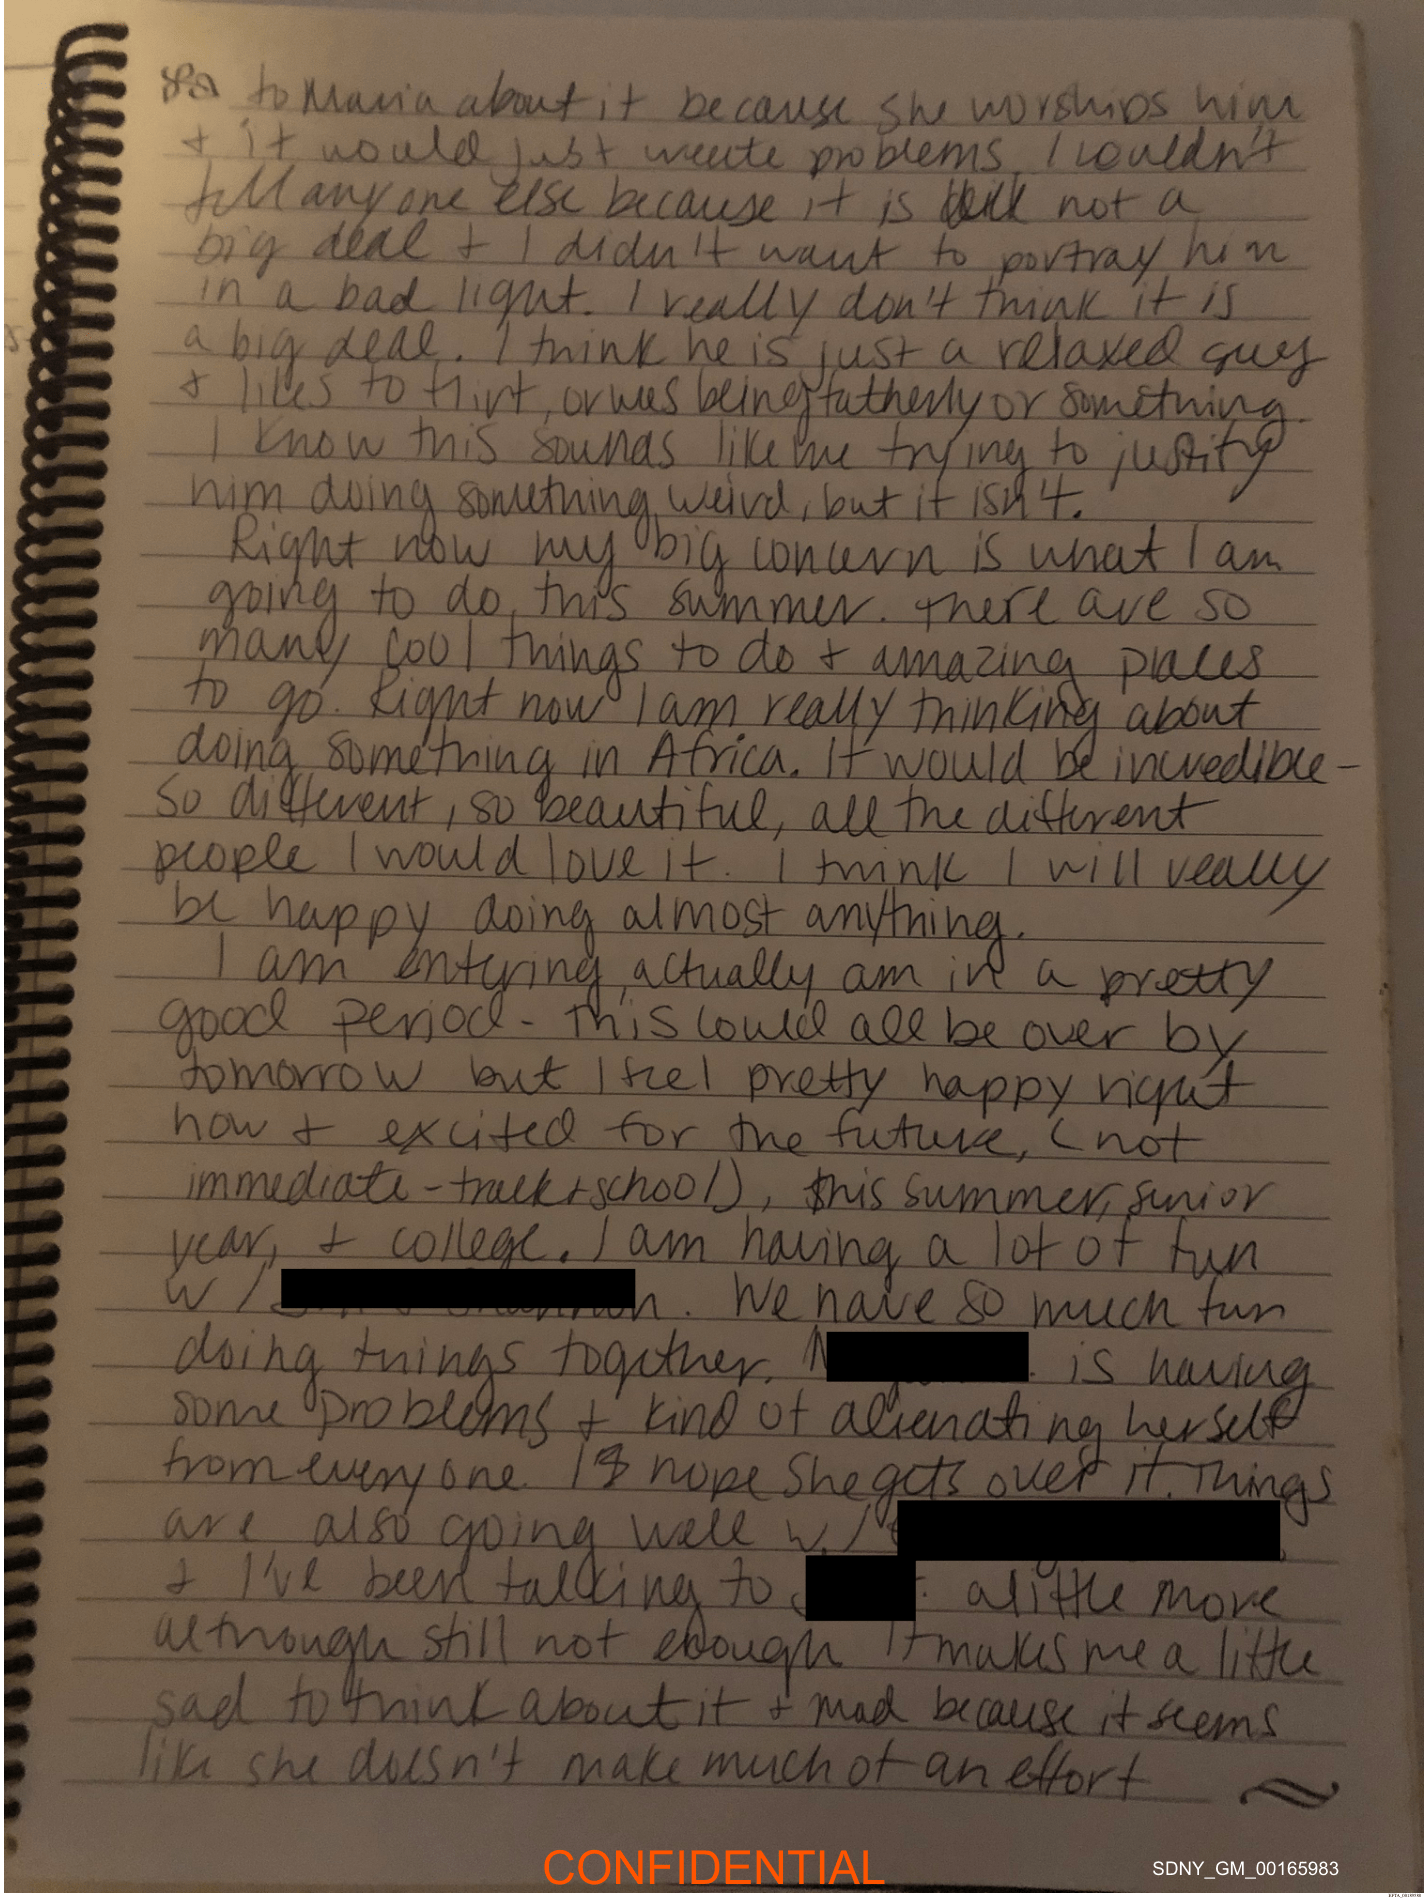 to Maria about it because she worships him
+ it would just create problems. I couldn't
tell any one else because it is not a
big deal + I didn't want to portray him
in a bad light. I really don't think it is
a big deal. I think he is just a relaxed guy
+ likes to flirt, or was being fatherly or something.
I know this sounds like me trying to justify
him doing something weird, but it isn't.
Right now my big concern is what I am
going to do this summer. There are so
many cool things to do + amazing places
to go. Right now I am really thinking about
doing something in Africa. It would be incredible -
so different, so beautiful, all the different
people I would love it. I think I will really
be happy doing almost anything.
I am entering, actually am in a pretty
good period - this could all be over by
tomorrow but I feel pretty happy right
now + excited for the future, (not
immediate - track + school), this summer, senior
year, + college. I am having a lot of fun
w/ . We have so much fun
doing things together. is having
some problems + kind of alienating herself
from everyone. I hope she gets over it. Things
are also going well w/
+ I've been talking to a little more
although still not enough. It makes me a little
sad to think about it + mad because it seems
like she doesn't make much of an effort
CONFIDENTIAL
SDNY_GM_00165983